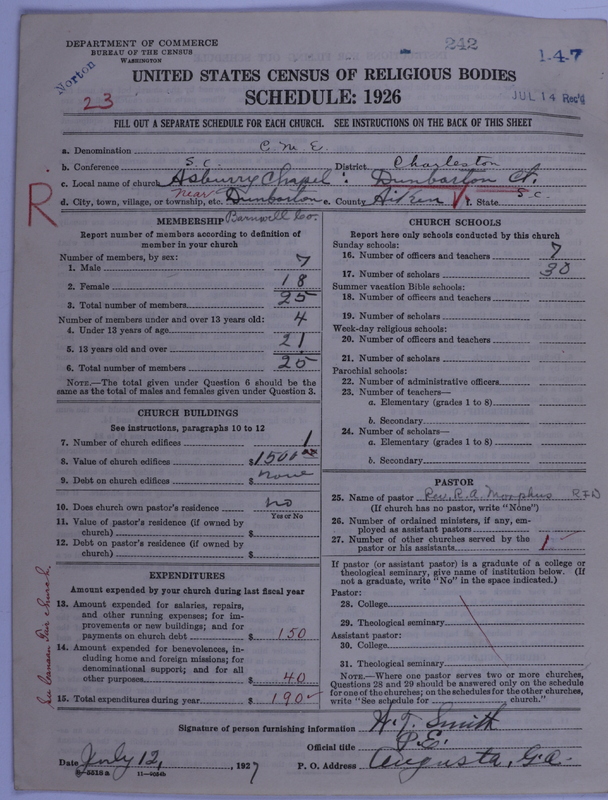 DEPARTMENT OF COMMERCE
BUREAU OF THE CENSUS
WASHINGTON
242
1-4-7
Norton
23
JUL 14 Rec'd
UNITED STATES CENSUS OF RELIGIOUS BODIES
SCHEDULE: 1926
FILL OUT A SEPARATE SCHEDULE FOR EACH CHURCH. SEE INSTRUCTIONS ON THE BACK OF THIS SHEET
a. Denomination C. M. E.
b. Conference S. C. District Charleston
c. Local name of church Asburry Chapel : Dunbarton Ct.
R
d. City, town, village, or township, etc. near Dunbarton e. County Aiken f. State S. C.
Barnwell Co.
MEMBERSHIP
Report number of members according to definition of
member in your church
Number of members, by sex:
1. Male 7
2. Female 18
3. Total number of members 25
Number of members under and over 13 years old:
4. Under 13 years of age 4
5. 13 years old and over 21
6. Total number of members 25
NOTE.—The total given under Question 6 should be the
same as the total of males and females given under Question 3.
CHURCH BUILDINGS
See instructions, paragraphs 10 to 12
7. Number of church edifices 1
8. Value of church edifices $1500 xx
9. Debt on church edifices $ none
10. Does church own pastor's residence no
Yes or No
11. Value of pastor's residence (if owned by
church) $
12. Debt on pastor's residence (if owned by
church) $
EXPENDITURES
Amount expended by your church during last fiscal year
13. Amount expended for salaries, repairs,
and other running expenses; for im-
provements or new buildings; and for
payments on church debt $ 150
14. Amount expended for benevolences, in-
cluding home and foreign missions; for
denominational support; and for all
other purposes $ 40
15. Total expenditures during year $ 190
See Canaan Fair church.
CHURCH SCHOOLS
Report here only schools conducted by this church
Sunday schools:
16. Number of officers and teachers 7
17. Number of scholars 30
Summer vacation Bible schools:
18. Number of officers and teachers
19. Number of scholars
Week-day religious schools:
20. Number of officers and teachers
21. Number of scholars
Parochial schools:
22. Number of administrative officers
23. Number of teachers—
a. Elementary (grades 1 to 8)
b. Secondary
24. Number of scholars—
a. Elementary (grades 1 to 8)
b. Secondary
PASTOR
25. Name of pastor Rev. R. A. Morphus R F D
(If church has no pastor, write "None")
26. Number of ordained ministers, if any, em-
ployed as assistant pastors
27. Number of other churches served by the
pastor or his assistants 1
If pastor (or assistant pastor) is a graduate of a college or
theological seminary, give name of institution below. (If
not a graduate, write "No" in the space indicated.)
Pastor:
28. College
29. Theological seminary
Assistant pastor:
30. College
31. Theological seminary
NOTE.—Where one pastor serves two or more churches,
Questions 28 and 29 should be answered only on the schedule
for one of the churches; on the schedules for the other churches,
write "See schedule for church."
Signature of person furnishing information H. T. Smith
Official title P. E.
Date July 12, 1927 P. O. Address Augusta, Ga.
8-5518 a 11-9084b